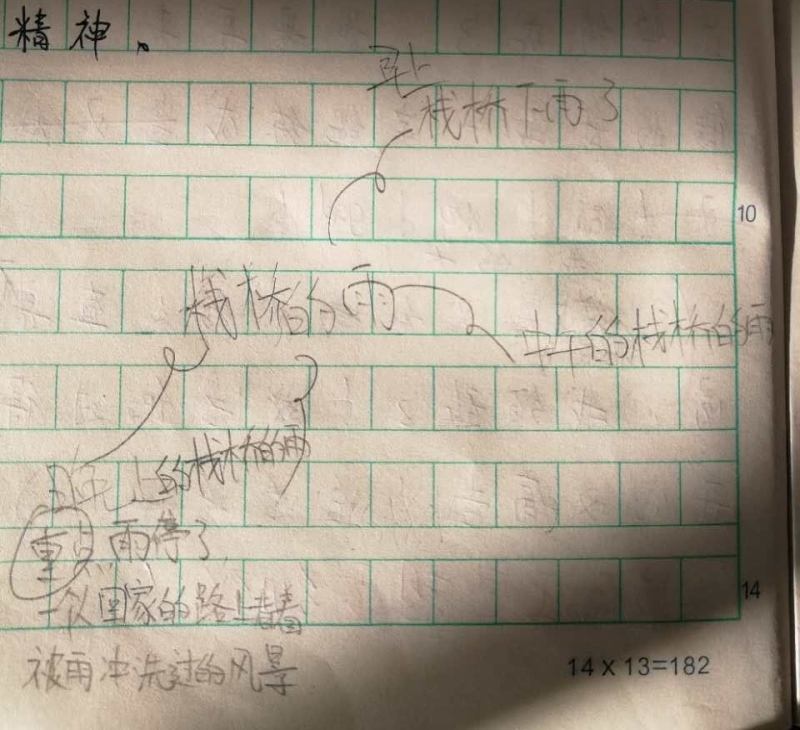 精神。
早上
栈桥下雨了
10
栈桥的雨
中午的栈桥的雨
晚上的栈桥的雨
重点雨停了
14
回家的路上看着
被雨冲洗过的风景
14 x 13=182